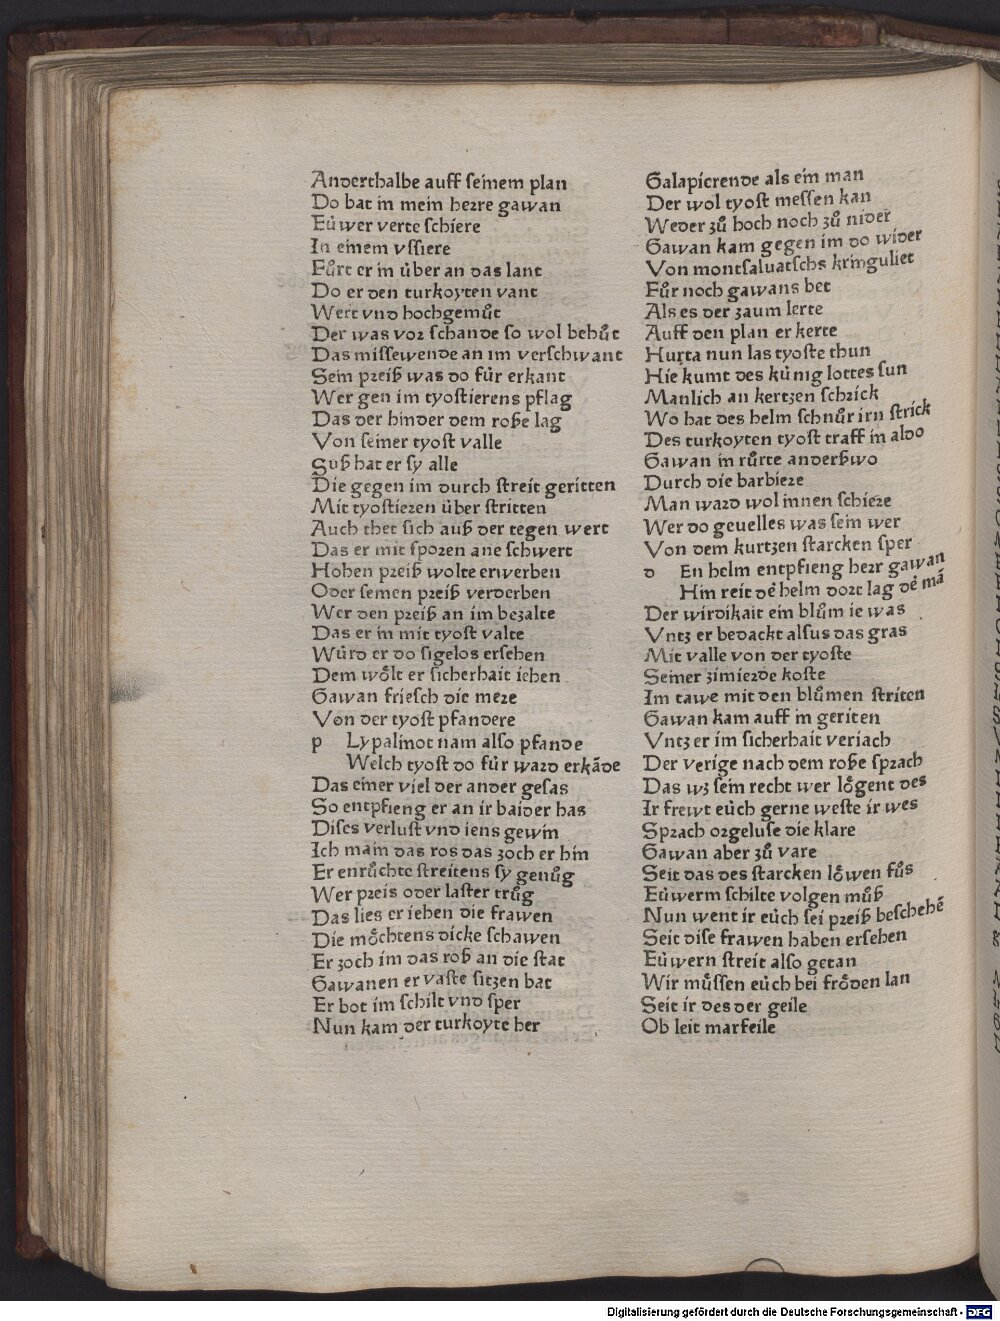 Anderthalbe auff seinem plan
Do bat in mein herre gawan
Eúwer verte schiere
In einem vssiere
Fůrt er in úber an das lant
Do er den turkoyten vant
Wert vnd hochgemůt
Der was vor schande so wol behůt
Das missewende an im verschwant
Sein preiß was do fúr erkant
Wer gen im tyostierens pflag
Das der hinder dem roße lag
Von seiner tyost valle
Suß hat er sy alle
Die gegen im durch streit geritten
Mit tyostieren úber stritten
Auch thet sich auß der tegen wert
Das er mit sporen ane schwert
Hohen preiß wolte erwerben
Oder semen preiß verderben
Wer den preiß an im bezalte
Das er in mit tyost valte
Wúrd er do sigelos ersehen
Dem woͤlt er sicherhait iehen
Gawan friesch die mere
Von der tyost pfandere
p Lypalinot nam also pfande
Welch tyost do fúr ward erkāde
Das einer viel der ander gesas
So entpfieng er an ir baider has
Dises verlust vnd iens gewin
Ich main das ros das zoch er hin
Er enrůchte streitens sy genůg
Wer preis oder laster trůg
Das lies er iehen die frawen
Die moͤchtens dicke schawen
Er zoch im das roß an die stat
Gawanen er vaste sitzen bat
Er bot im schilt vnd sper
Nun kam der turkoyte her
Galapierende als ein man
Der wol tyost messen kan
Weder zů hoch noch zů nider
Gawan kam gegen im do wider
Von montsaluatschs kringuliet
Fůr noch gawans bet
Als es der zaum lerte
Auff den plan er kerte
Hurta nun las tyoste thun
Hie kumt des kúnig lottes sun
Manlich an kertzen schrick
Wo hat des helm schnůr irn strick
Des turkoyten tyost traff in aldo
Gawan in růrte anderßwo
Durch die barbiere
Man ward wol innen schiere
Wer do geuelles was sein wer
Von dem kurtzen starcken sper
d En helm entpfieng herr gawan
Hin reit dē helm dort lag dē mā
Der wirdikait ein blům ie was
Vntz er bedackt alsus das gras
Mit valle von der tyoste
Seiner zimierde koste
Im tawe mit den blůmen striten
Gawan kam auff in geriten
Vntz er im sicherhait veriach
Der verige nach dem roße sprach
Das wz sein recht wer loͤgent des
Ir frewt eúch gerne weste ir wes
Sprach orgeluse die klare
Gawan aber zů vare
Seit das des starcken loͤwen fůs
Eúwerm schilte volgen můß
Nun went ir eúch sei preiß beschehē
Seit dise frawen haben ersehen
Eúwern streit also getan
Wir mússen eúch bei froͤden lan
Seit ir des der geile
Ob leit marfeile
Digitalisierung gefördert durch die Deutsche Forschungsgemeinschaft - DFG